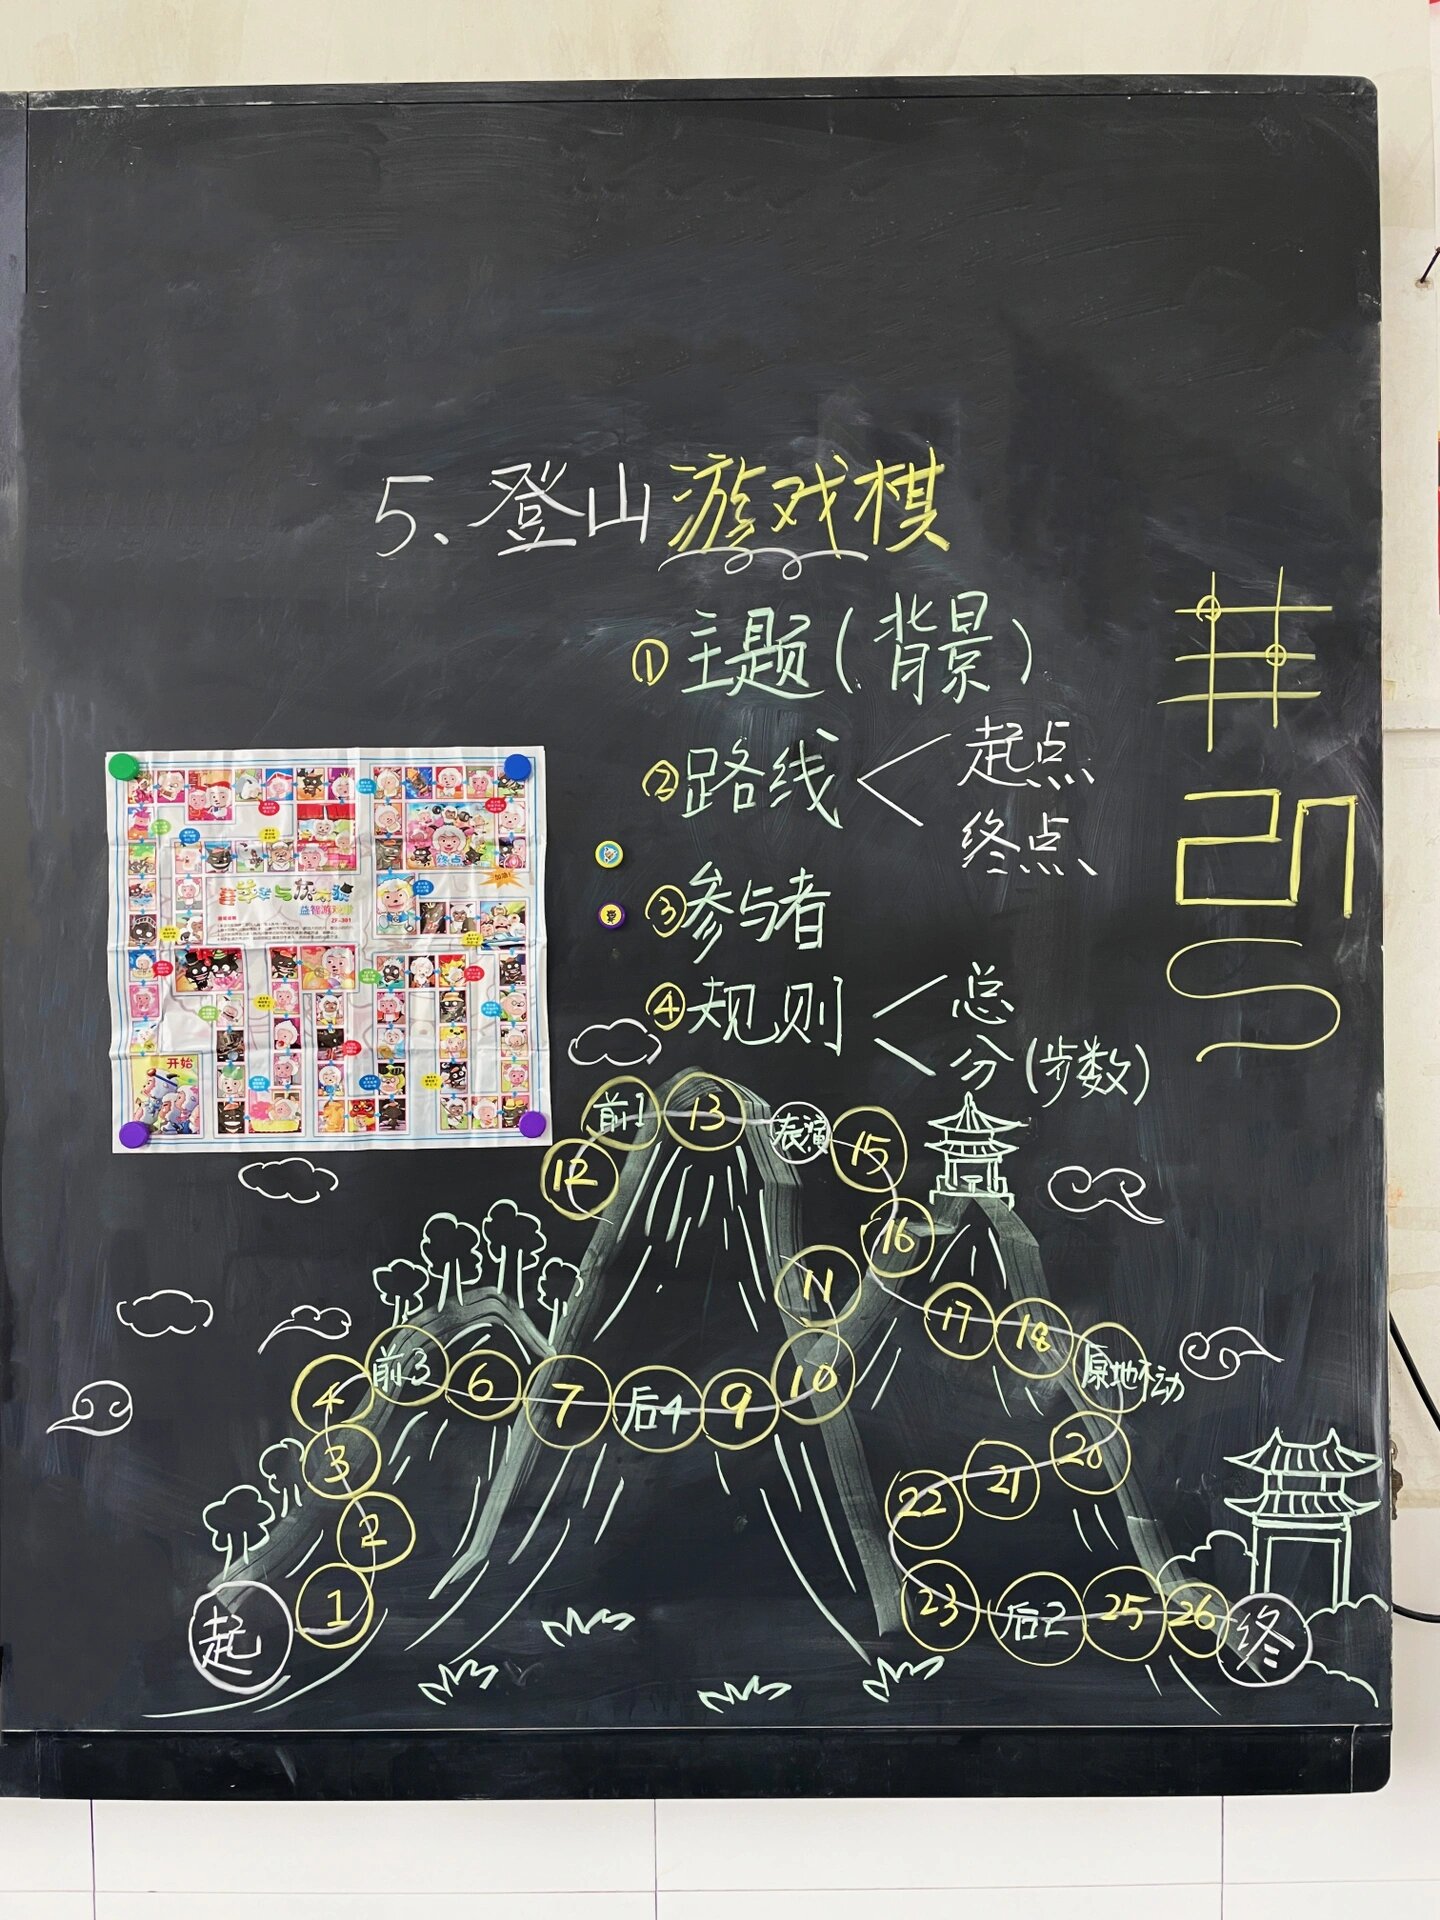 5、登山游戏棋
① 主题(背景)
② 路线 起点
终点
③ 参与者
④ 规则 总
分(步数)
开始
终点
益智游戏
起
1
2
3
4
前3
6
7
后4
9
10
11
12
前1
13
表演
15
16
17
18
原地不动
20
21
22
23
后2
25
26
终